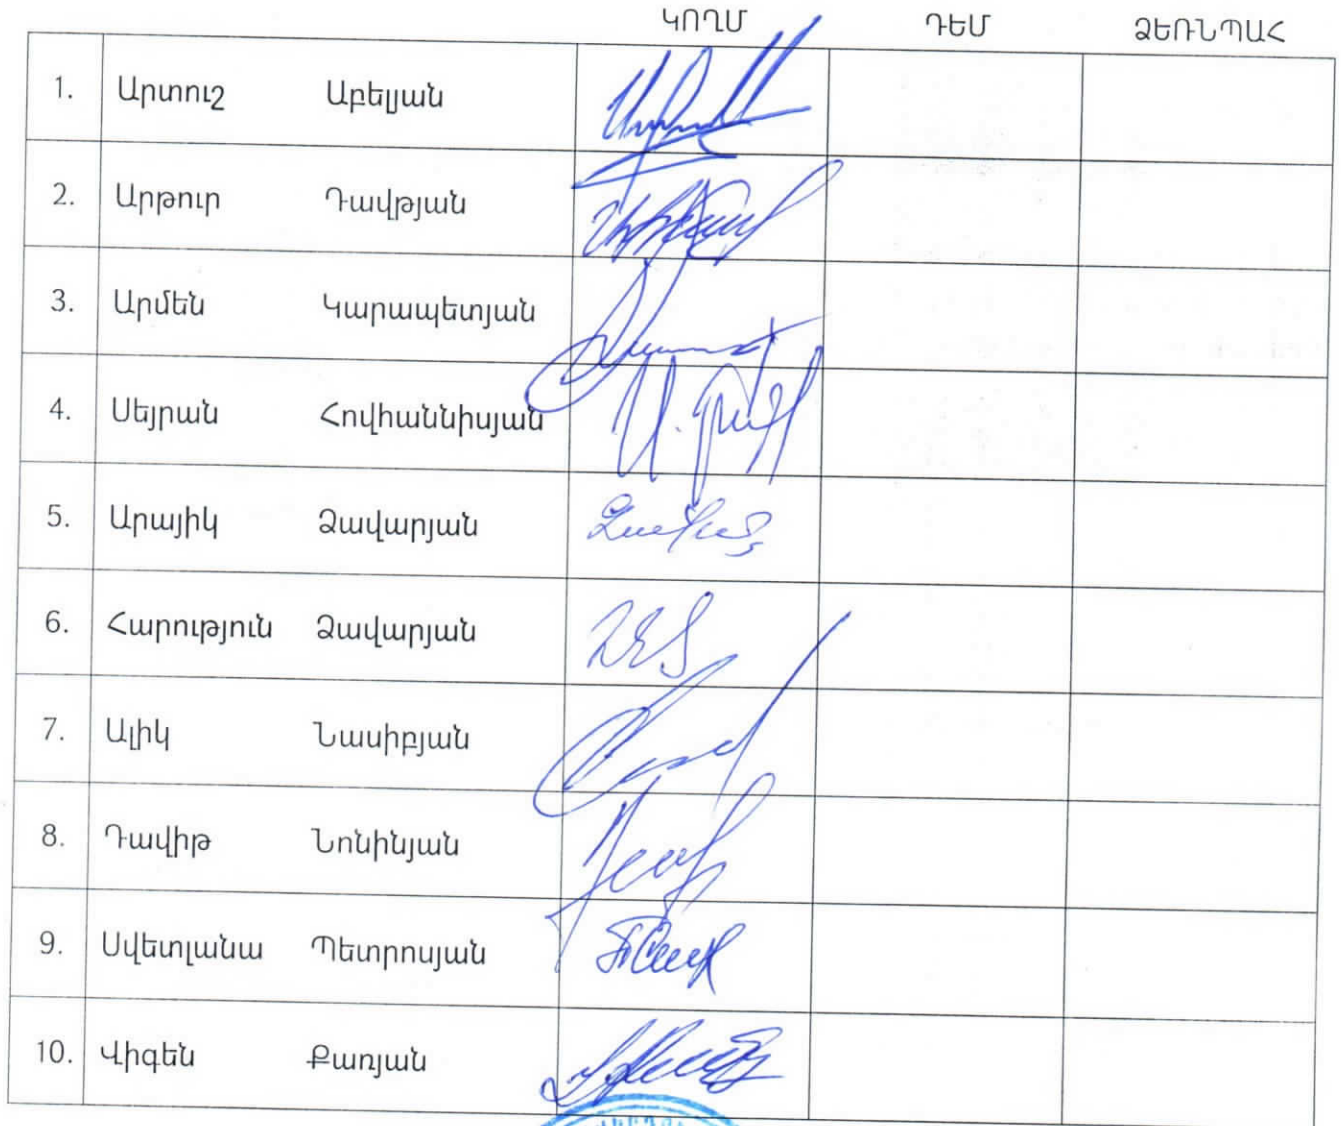 ԿՈՂՄ ԴԵՄ ՁԵՌՆՊԱՀ
1. Արտուշ Աբելյան
2. Արթուր Դավթյան
3. Արմեն Կարապետյան
4. Սեյրան Հովհաննիսյան
5. Արայիկ Զավարյան
6. Հարություն Զավարյան
7. Ալիկ Նասիբյան
8. Դավիթ Նոնինյան
9. Սվետլանա Պետրոսյան
10. Վիգեն Քառյան